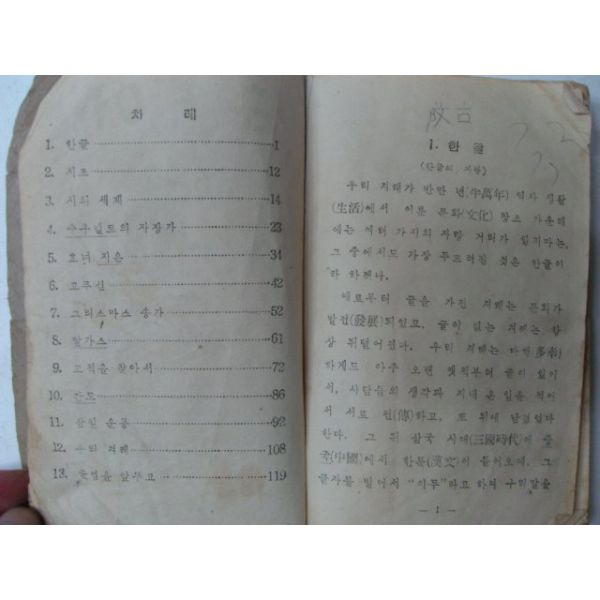 차 례
1. 한글 1
2. 시조 12
3. 시의 세계 14
4. 수우밀드의 자장가 23
5. 소녀 지음 34
6. 고주신 42
7. 그리스마스 송가 52
8. 발가스 61
9. 고적을 찾아서 72
10. 간도 86
11. 삼일 운동 92
12. 우리 겨레 108
13. 졸업을 앞두고 119
1. 한 글
(한글의 자랑)
우리 겨레가 반만 년(半萬年) 역사 생활
(生活)에서 이룬 문화(文化) 창조 가운데
에는 여러 가지의 자랑 거리가 있지마는,
그 중에서도 가장 뚜드러진 것은 한글이
라 하겠다.
예로부터 글을 가진 겨레는 문화가
발전(發展)되었고, 글이 없는 겨레는 항
상 뒤떨어졌다. 우리 겨레는 다행(多幸)
하게도 아주 오랜 옛적부터 글이 있어
서, 사람들의 생각과 지내 온 일을 적어
서 서로 전(傳)하고, 또 뒤에 남겼었다
한다. 그 뒤 삼국 시대(三國時代)에 중
국(中國)에서 한문(漢文)이 들어오매, 그
글자를 빌어서 “이두”라고 하여 우리말을
— 1 —